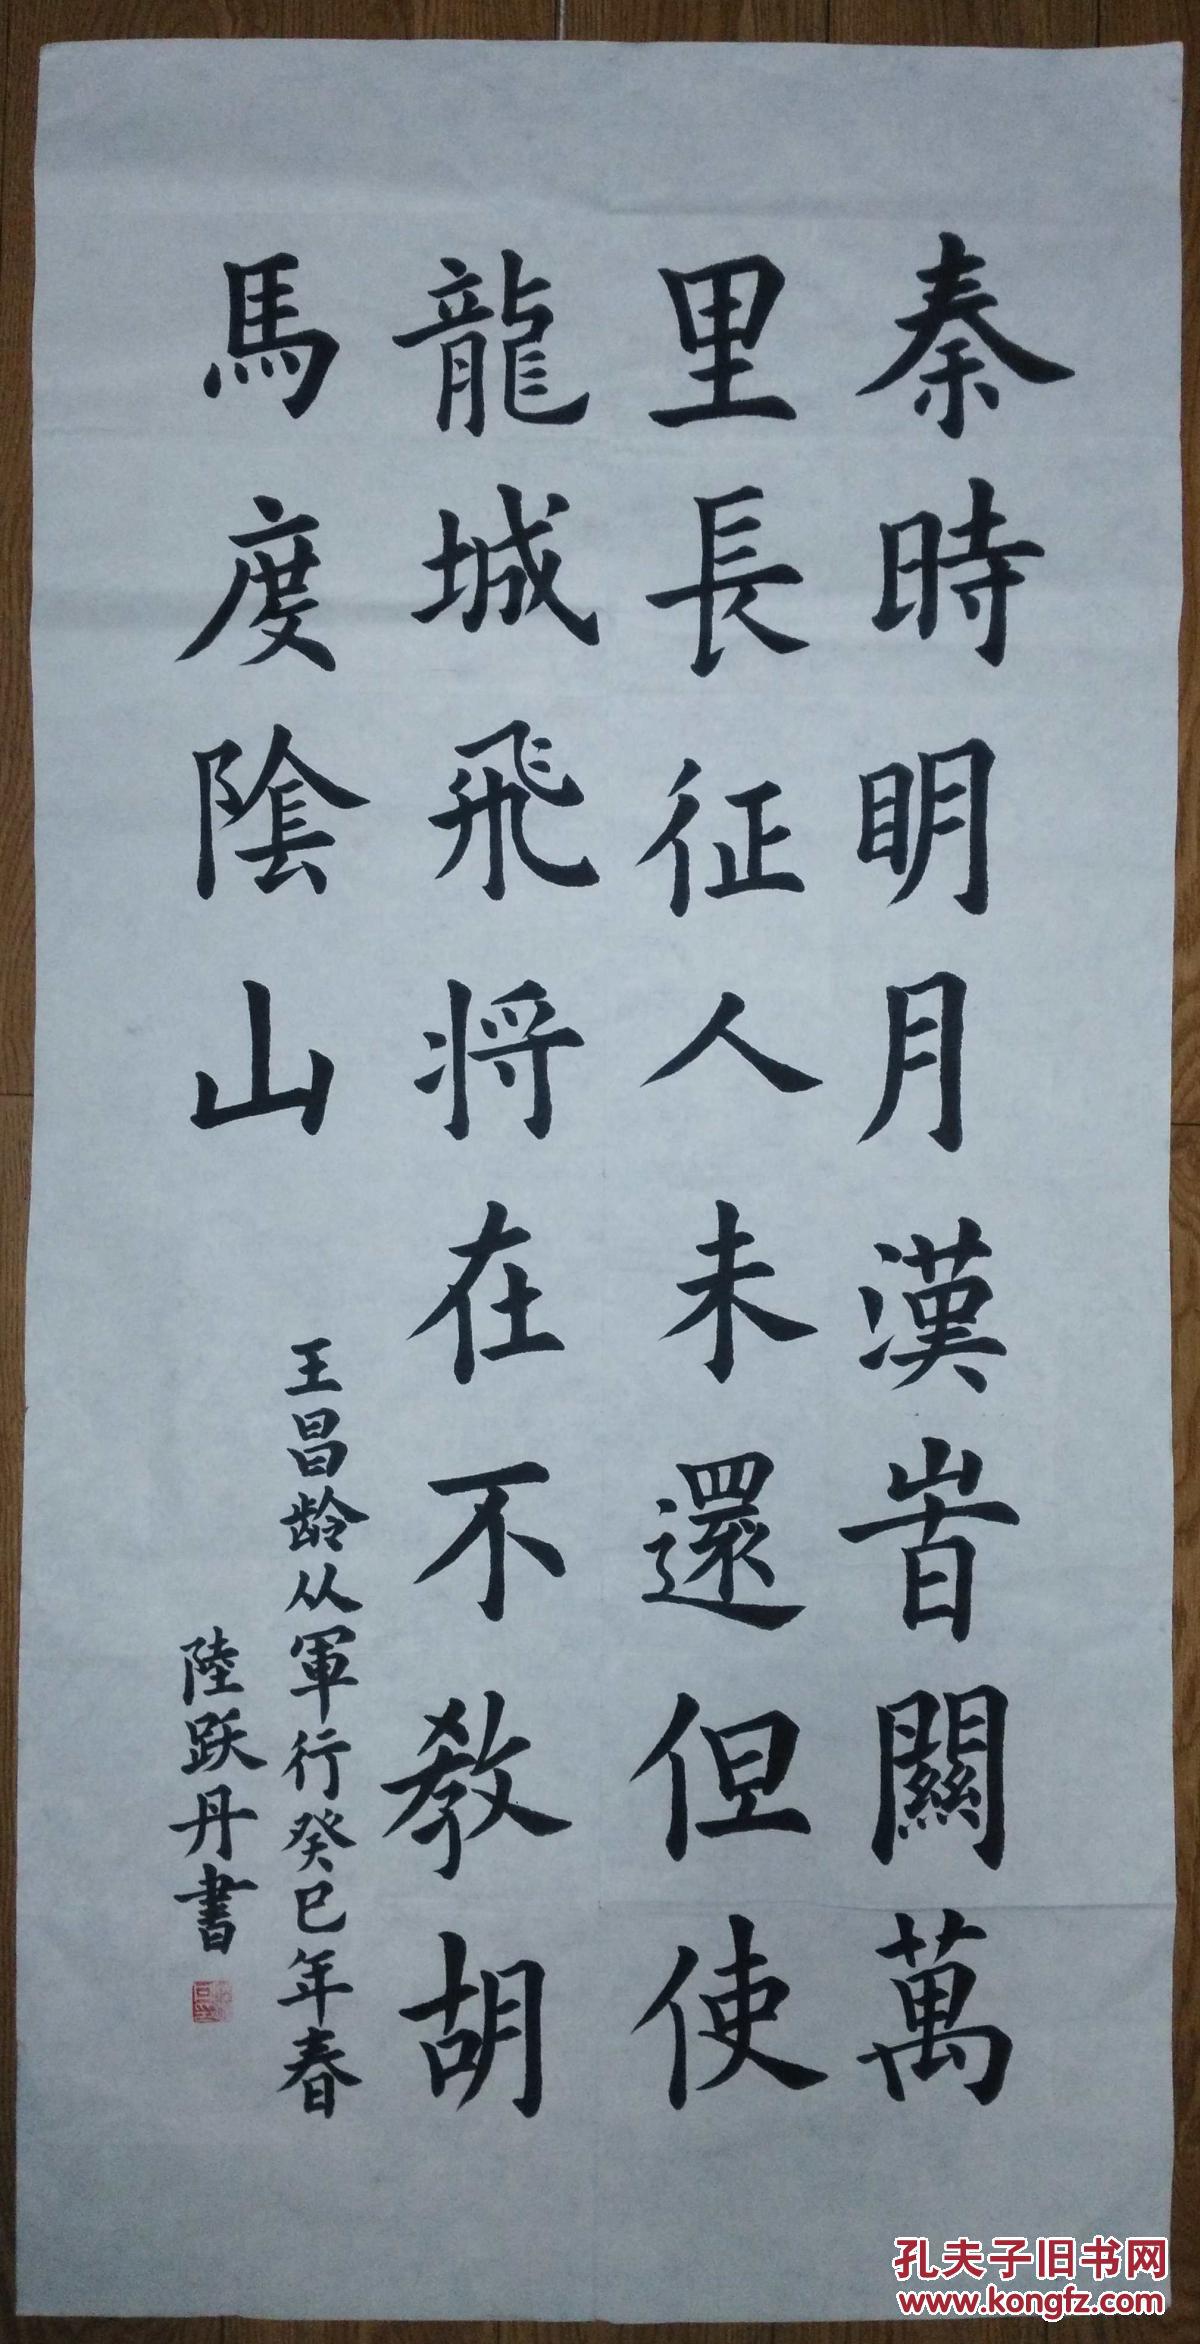 秦時明月漢旹關萬
里長征人未還但使
龍城飛将在不教胡
馬度陰山
王昌龄从軍行癸巳年春
陸跃丹書
孔夫子旧书网
www.kongfz.com